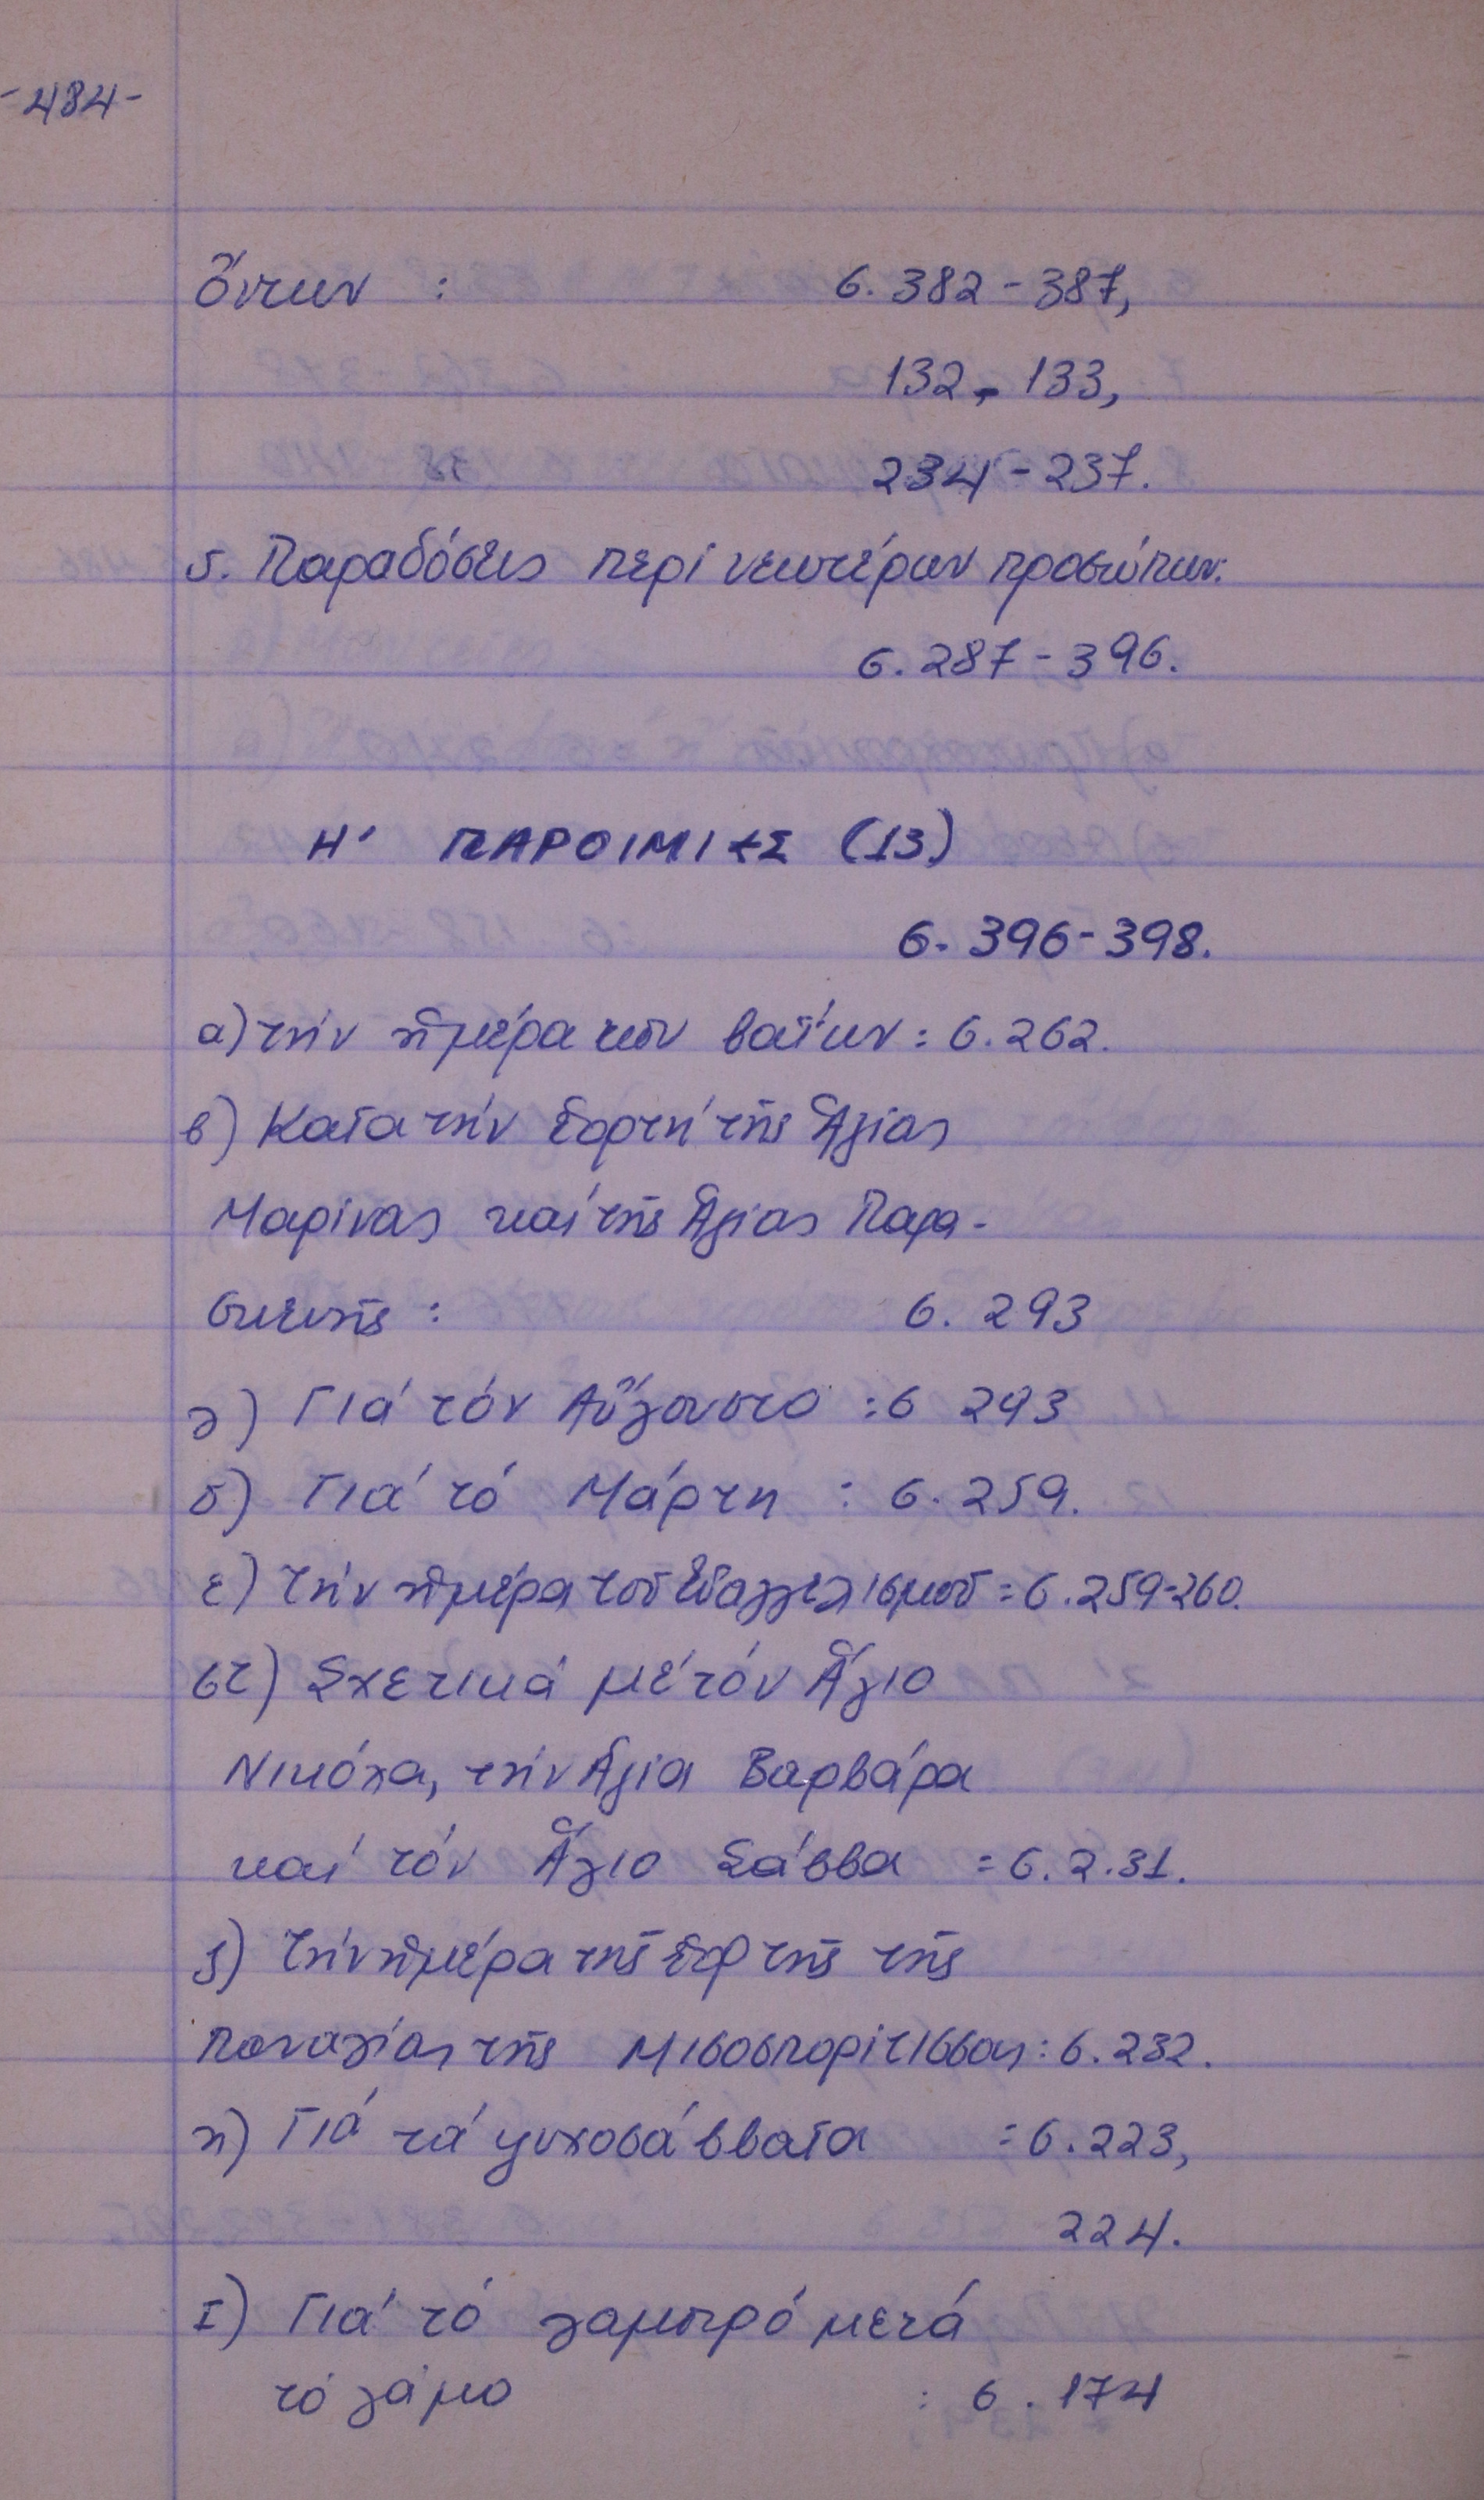 -484-
ὄντων : σ. 382-387,
132, 133,
234-237.
5. Παραδόσεις περί νεωτέρων προσώπων:
σ. 287-396.
Η' ΠΑΡΟΙΜΙΕΣ (13)
σ. 396-398.
α) τήν ἡμέρα τῶν βαΐων : σ. 262.
β) Κατα τήν ἑορτή τῆς Ἁγίας
Μαρίνας καί τῆς Ἁγίας Παρα-
σκευῆς : σ. 293
γ) Γιά τόν Αὔγουστο : σ 293
δ) Γιά τό Μάρτη : σ. 259.
ε) τήν ἡμέρα τοῦ Εὐαγγελισμοῦ = σ. 259-260.
στ) Σχετικά μέ τόν Ἅγιο
Νικόλα, τήν Ἁγία Βαρβάρα
καί τόν Ἅγιο Σάββα = σ. 2.31.
ζ) τήν ἡμέρα τῆς ἑορτῆς τῆς
Παναγίας τῆς Μισοσπορίτισσας : σ. 232.
η) Γιά τά ψυχοσάββατα = σ. 223,
224.
Ι) Γιά τό γαμπρό μετά
τό γάμο : σ. 174